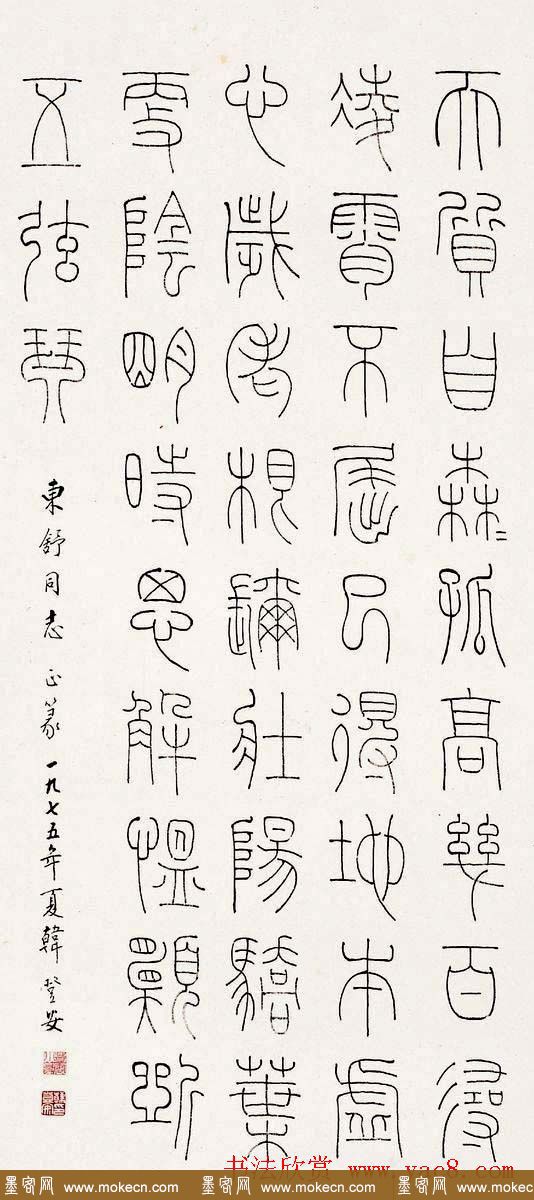 天質自森=孤高幾百尋
凌霄不屈己得地本虛
心歲老根彌壯陽驕葉
更陰明時思解慍願斲
五弦琴
東舒同志正篆一九七五年夏韓登安
书法欣赏 www.yac8.com
墨客网 www.mokecn.com 墨客网 www.mokecn.com 墨客网 www.mokecn.com